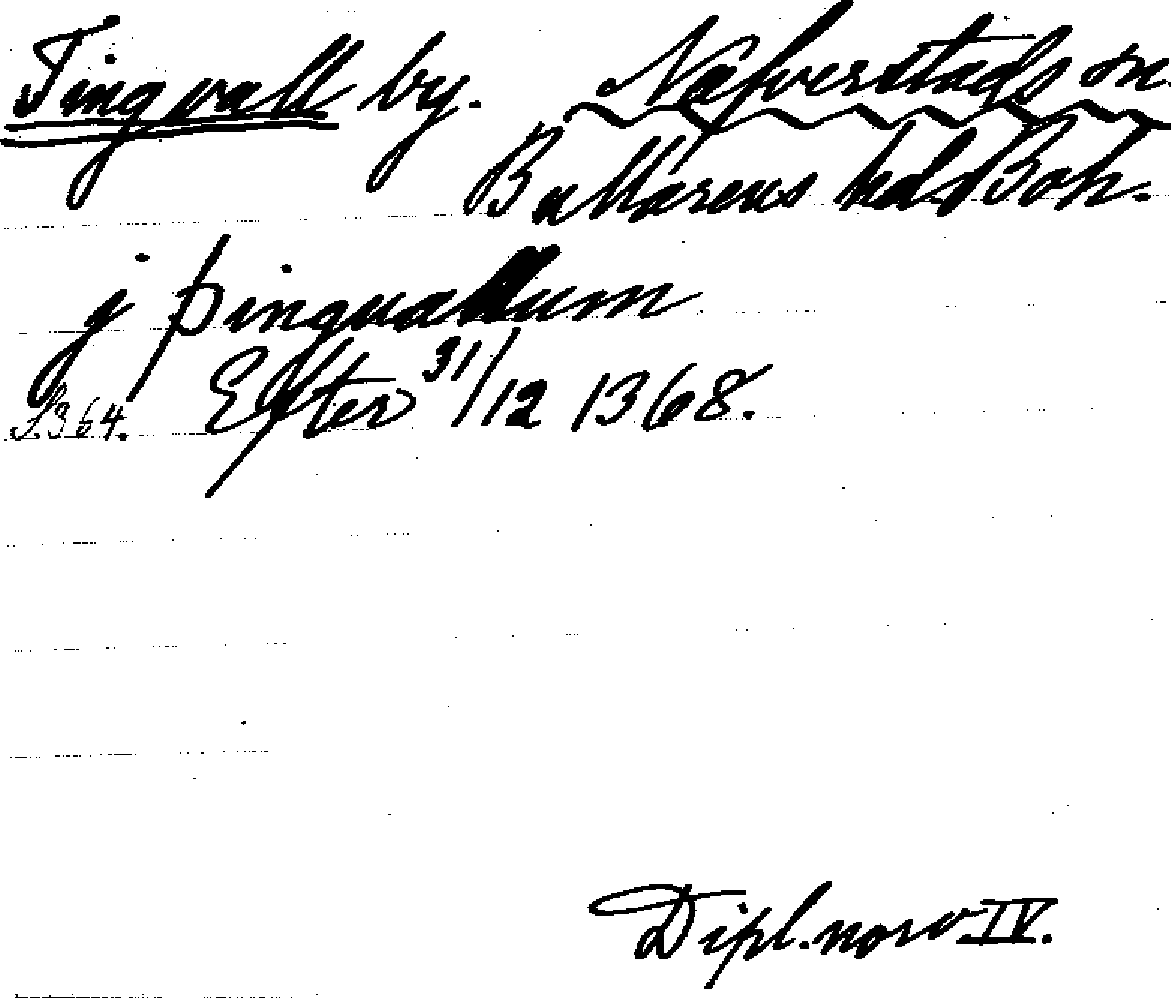 Tingvall by. Näfverstads sn
Bullarens hd Boh.
j þinguallum
S.364. Efter 31/12 1368.
Dipl. norv. IV.